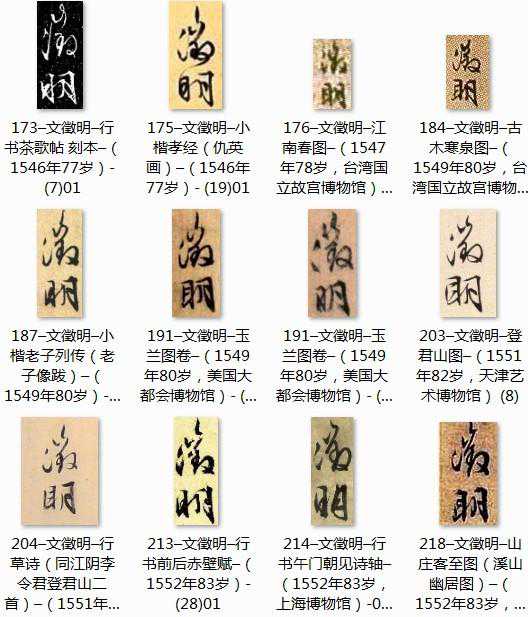 徵明
173–文徵明–行
书茶歌帖 刻本–（
1546年77岁）-
(7)01
徵明
175–文徵明–小
楷孝经（仇英
画）–（1546年
77岁）- (19)01
徵明
176–文徵明–江
南春图–（1547
年78岁，台湾国
立故宫博物馆）...
徵明
184–文徵明–古
木寒泉图–（
1549年80岁，台
湾国立故宫博物...
徵明
187–文徵明–小
楷老子列传（老
子像跋）–（
1549年80岁）-...
徵明
191–文徵明–玉
兰图卷–（1549
年80岁，美国大
都会博物馆）- (...
徵明
191–文徵明–玉
兰图卷–（1549
年80岁，美国大
都会博物馆）- (...
徵明
203–文徵明–登
君山图–（1551
年82岁，天津艺
术博物馆） (8)
徵明
204–文徵明–行
草诗（同江阴李
令君登君山二
首）–（1551年...
徵明
213–文徵明–行
书前后赤壁赋–（
1552年83岁）-
(28)01
徵明
214–文徵明–行
书午门朝见诗轴–
（1552年83岁，
上海博物馆）-0...
徵明
218–文徵明–山
庄客至图（溪山
幽居图）–（
1552年83岁，...